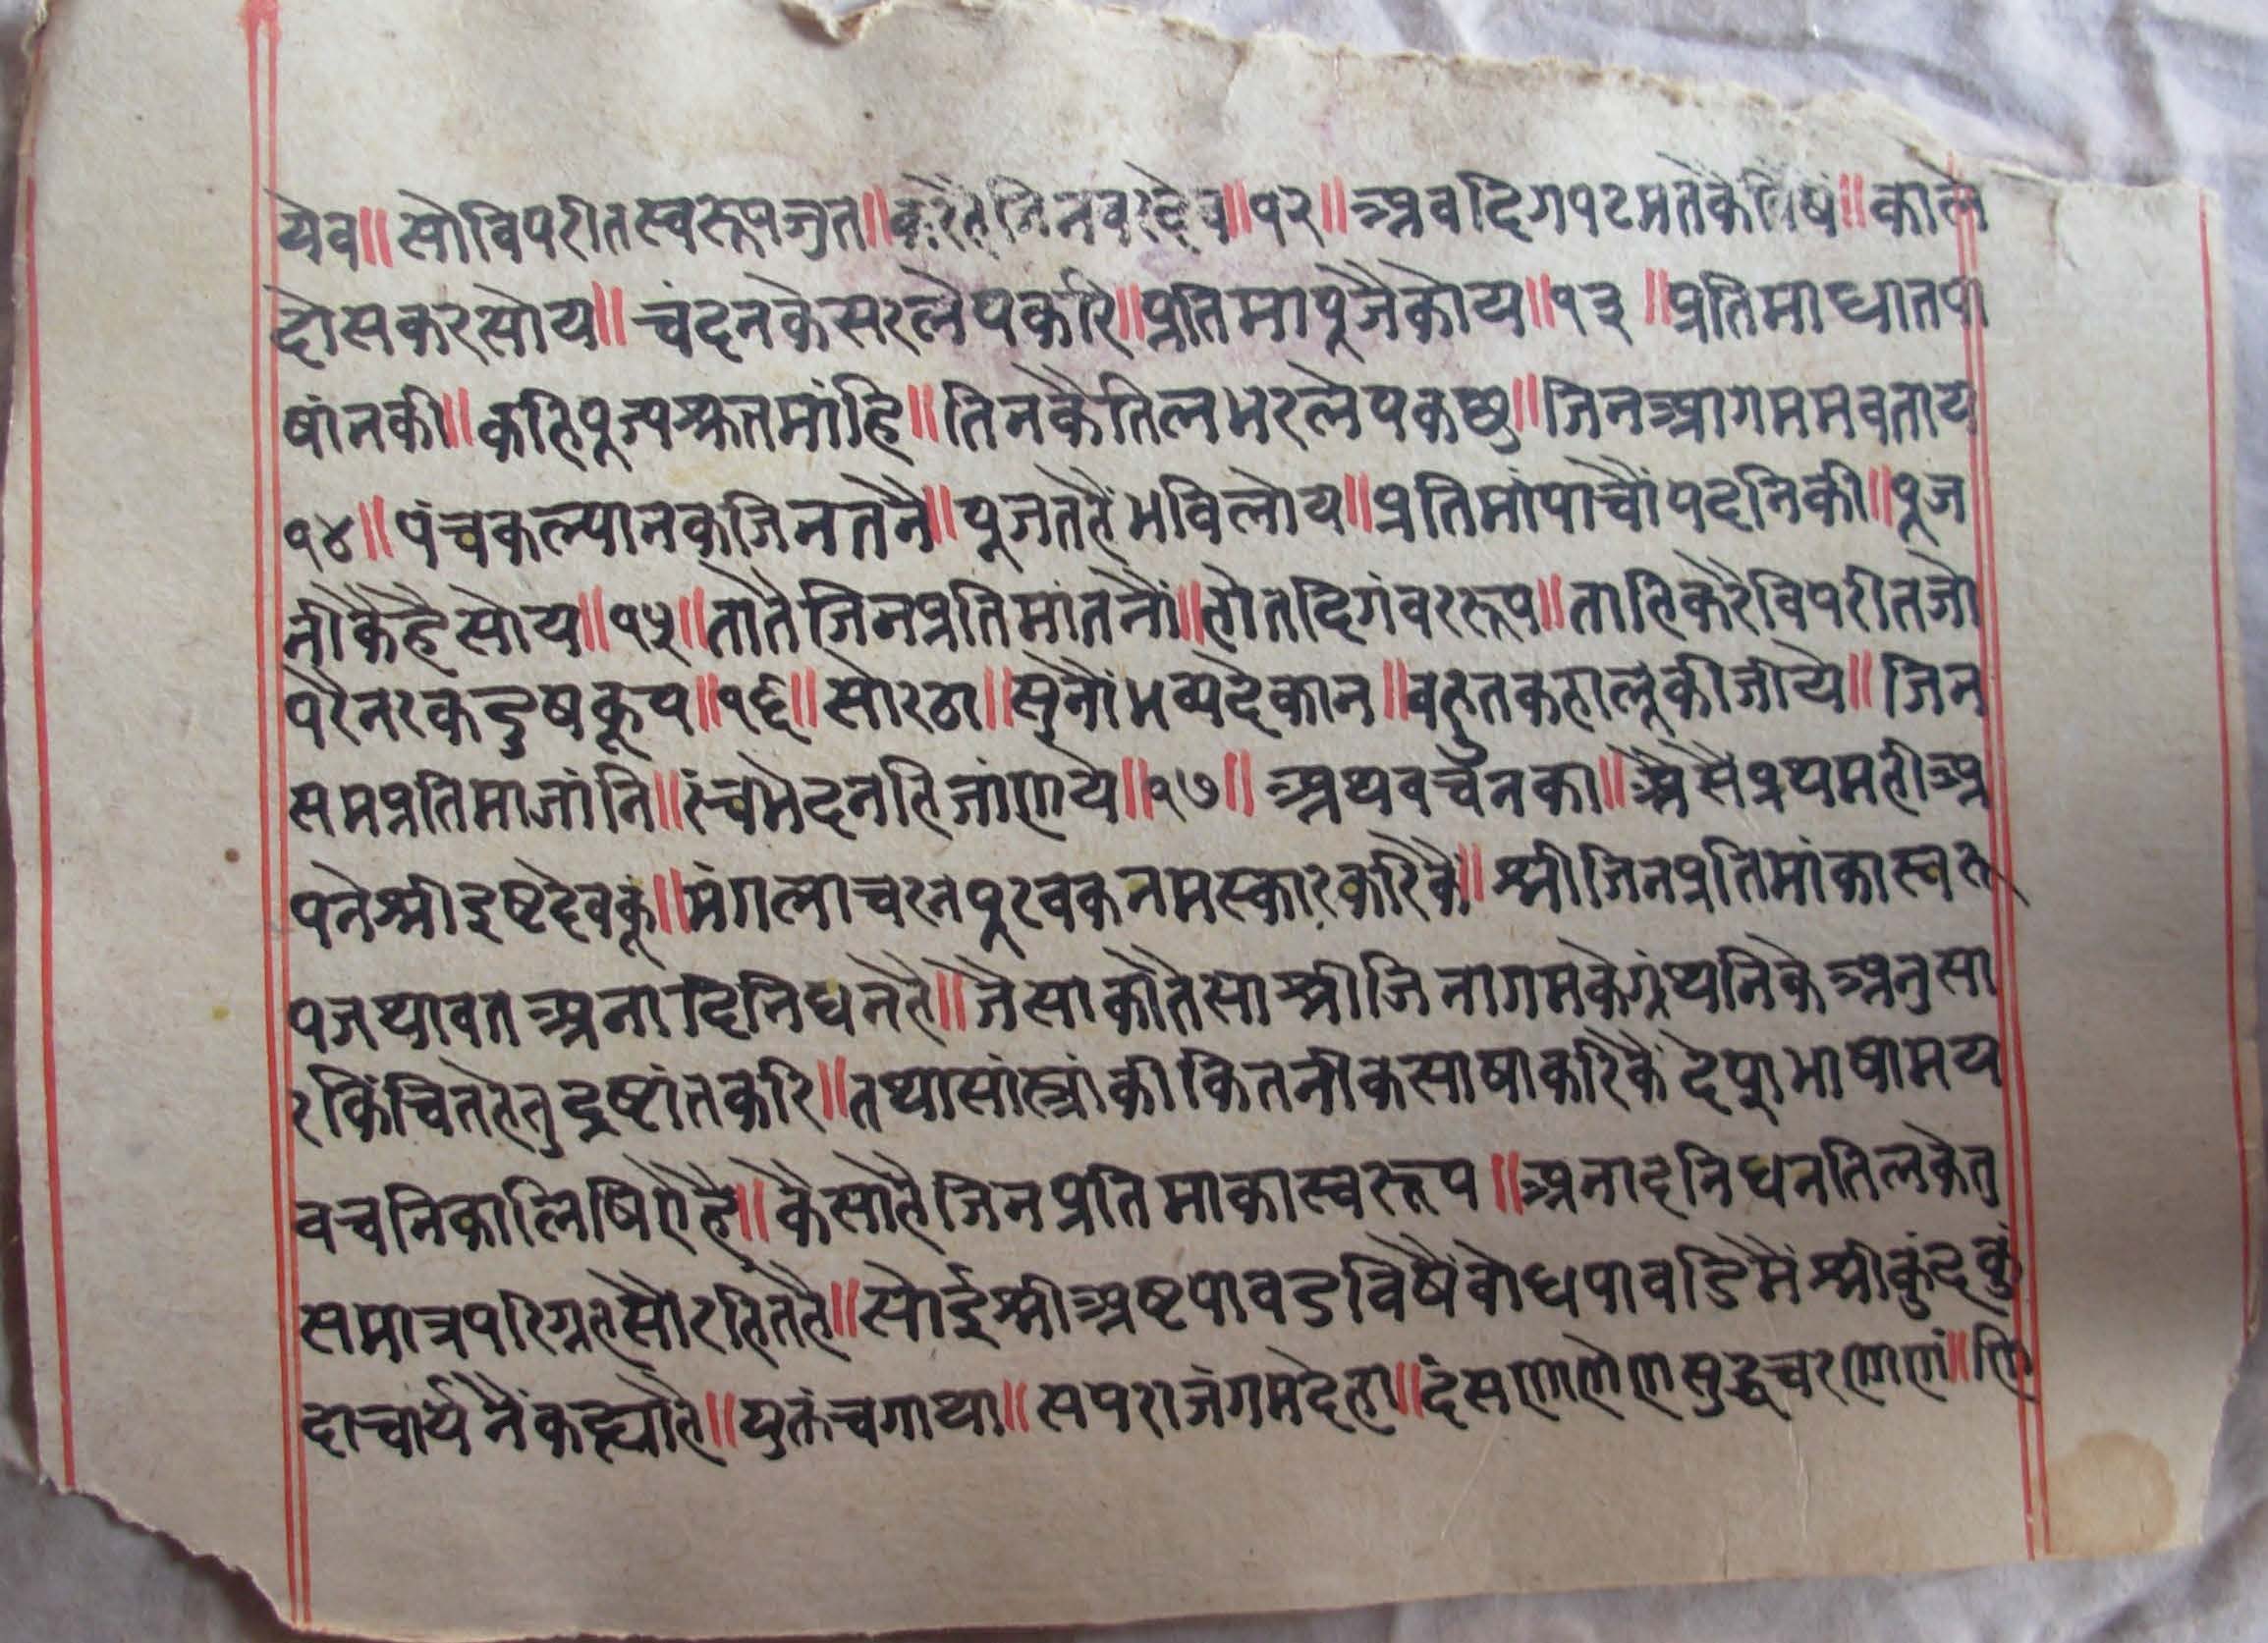 येव॥ सोविपरीतस्वरूपजुत॥ करैत जिनवरदेव॥१२॥ अवदिगपटमतकैविषैं॥ काल
दोसकरसोय॥ चंदनकेसरलेपकरि॥ प्रतिमापूजैकोय॥१३॥ प्रतिमाधातपा
षांनकी॥ कहिपूज्यश्रुतमांहि॥ तिनकैतिलभरलेपकछु॥ जिनआगममवताय
१४॥ पंचकल्यानकजिनतनै॥ पूजतहैंभविलोय॥ प्रतिमांपाचौंपदनिकी॥ पूज
नीकैहैसोय॥१५॥ तातैजिनप्रतिमांतनौं॥ होतदिगंवररूप॥ ताहिकरैविपरीतजो
परैनरकदुषकूप॥१६॥ सोरठा॥ सुनौंभव्यदेकान॥ वहुतकहालूकीजीये॥ जिन
समप्रतिमाजांनि॥ रंचभेदनहिजांणये॥१७॥ अथवचनका॥ असैप्रथमहीअ
पनेश्रीइष्टदेवकूं॥ मंगलाचरनपूरवकनमस्कारकरिकैं॥ श्रीजिनप्रतिमांकास्वरू
पजथावतअनादिनिधनहै॥ जैसाकौतैसाश्रीजिनागमकेग्रंथनिकेअनुसा
रकिंचितहेतुद्रष्टांतकरि॥ तथासांस्त्रांकीकितनीकसाषाकरिकैंदेशभाषामय
वचनिकालिषिएहै॥ कैसाहैजिनप्रतिमाकास्वरूप॥ अनादनिधनतिलकेतु
समात्रपरिग्रहसौरहितहै॥ सोईश्रीअष्टपावडविषैंवोधपावडिमैंश्रीकुंदकुं
दाचार्यनैंकह्यौहै॥ युक्तंचगाथा॥ सपराजंगमदेहा॥ दंसणणाणेणसुद्धचरणाणं॥ णि